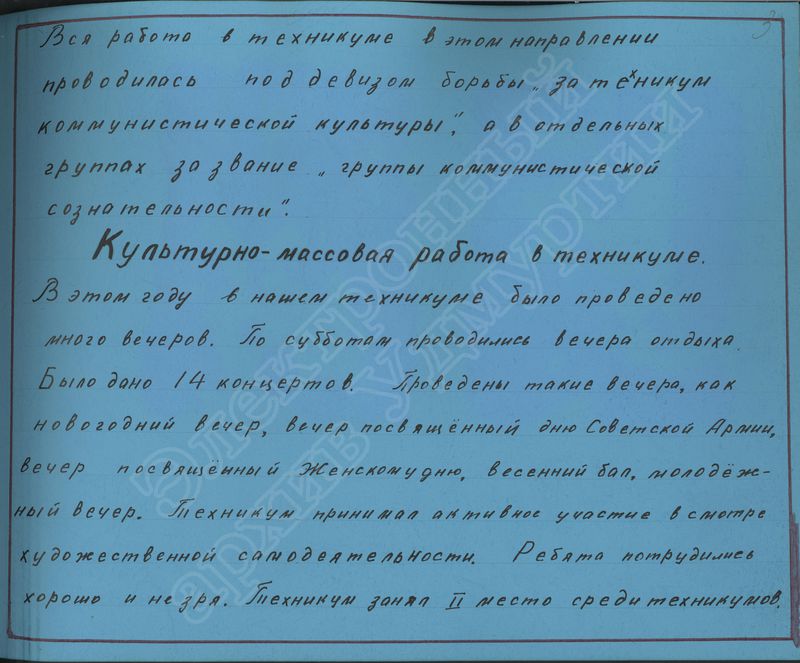 3
Вся работа в техникуме в этом направлении
проводилась под девизом борьбы „за техникум
коммунистической культуры", а в отдельных
группах за звание „группы коммунистической
сознательности".
Культурно-массовая работа в техникуме.
В этом году в нашем техникуме было проведено
много вечеров. По субботам проводились вечера отдыха.
Было дано 14 концертов. Проведены такие вечера, как
новогодний вечер, вечер посвящённый дню Советской Армии,
вечер посвящённый Женскому дню, весенний бал, молодёж-
ный вечер. Техникум принимал активное участие в смотре
художественной самодеятельности. Ребята потрудились
хорошо и не зря. Техникум занял II место среди техникумов.
Электронный
архив Удмуртии